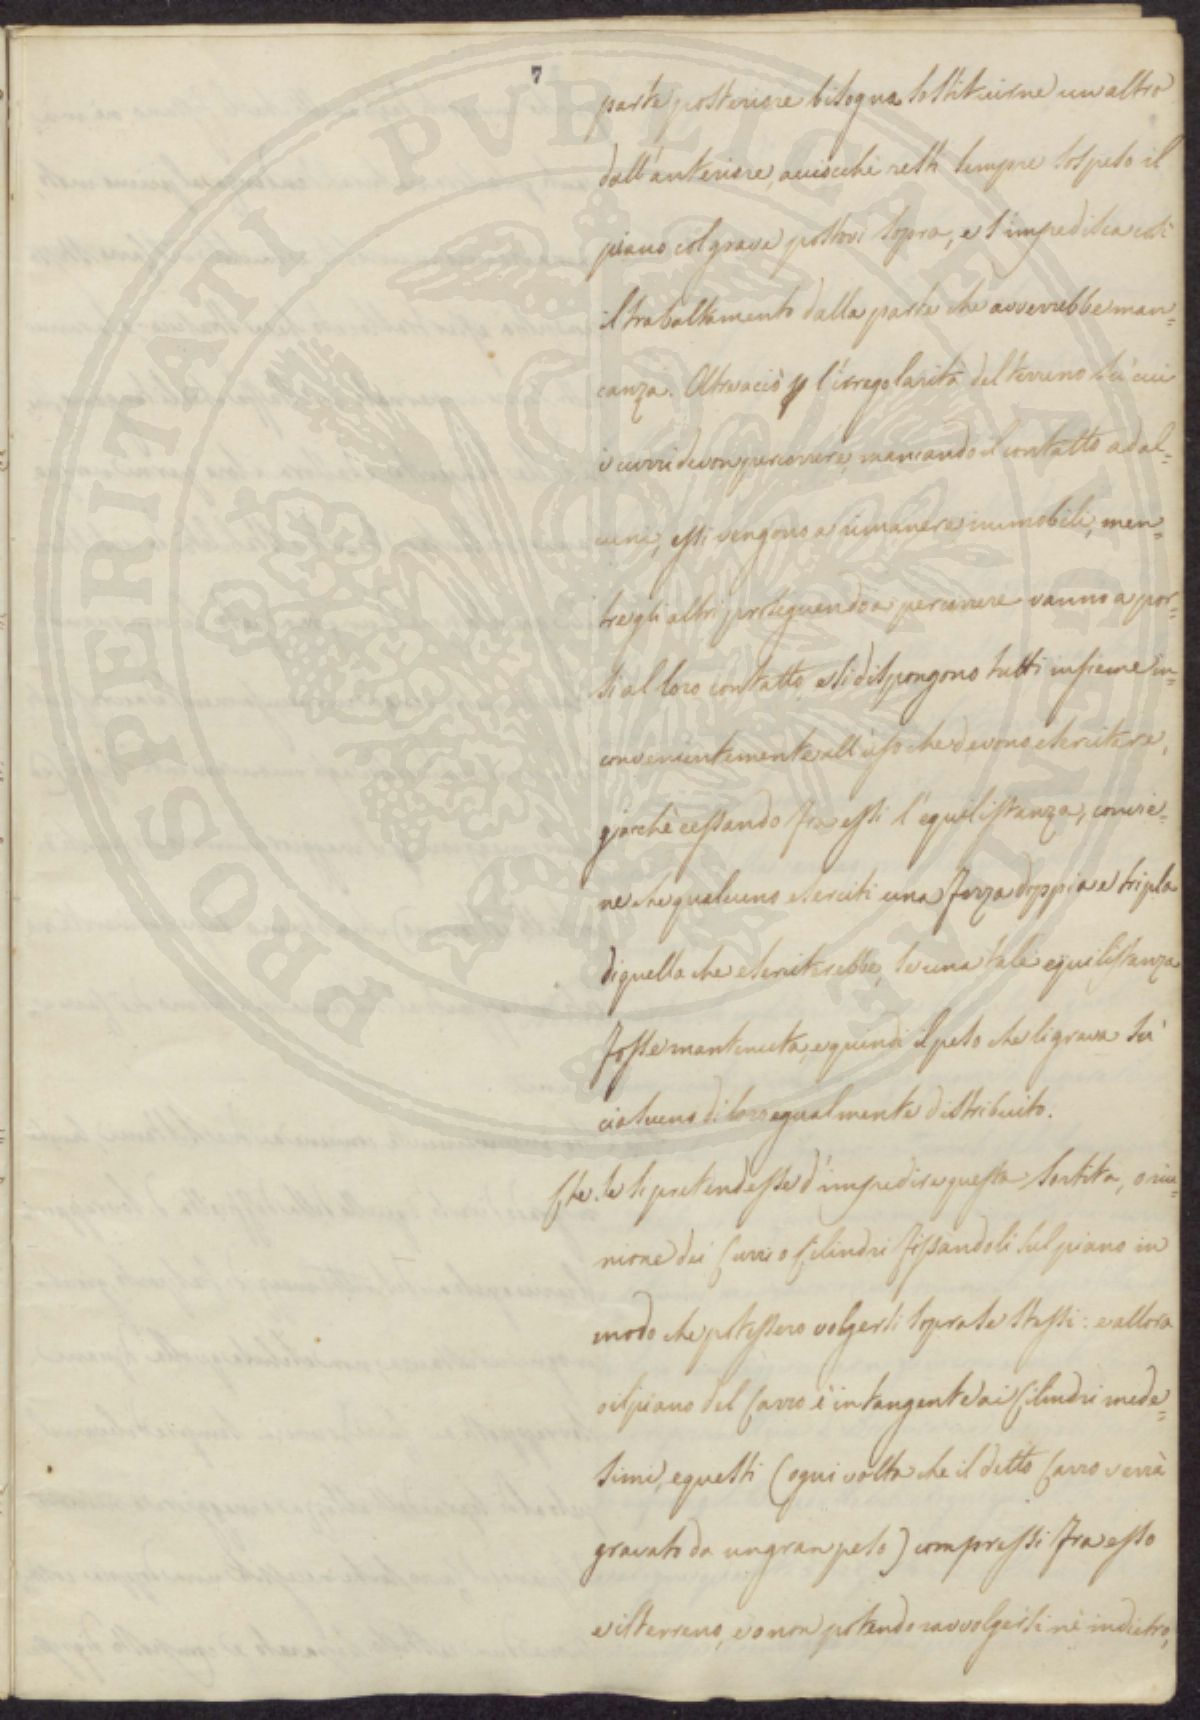 7
parte posteriore bisogna sostituirne un altro
dall'anteriore, acciocchè resti sempre sospeso il
piano col grave postovi sopra, e s'impedisca così
il trabaltamento dalla parte che avverrebbe man=
canza. Oltreacciò p l'irregolarità del terreno sù cui
i curri devon percorrere, mancando il contatto ad al=
cuni, essi vengono a rimanere immobili, men=
tre gli altri proseguendo a percorrere vanno a por=
si al loro contatto, e si dispongono tutti insieme in=
convenientemente all'uso che devono esercitare,
giacchè cessando fra essi l'equilistanza, convie=
ne che qualcuno eserciti una forza doppia e tripla
di quella che eserciterebbe, se una tale equilistanza
fosse mantenuta, e quindi il peso che li grava sù
ciascuno di loro egualmente distribuito.
Che se si pretendesse d'impedire questa sortita, o riu=
nione dei Curri o Cilindri fissandoli sul piano in
modo che potessero volgersi sopra se stessi: e allora
o il piano del Carro è in tangente ai Cilindri mede=
simi, e questi (ogni volta che il detto Carro verrà
gravato da un gran peso) compressi fra esso
e il terreno, e o non potendo ravvolgersi nè indietro,
PROSPERITATI PVBLICAE AVGENDAE